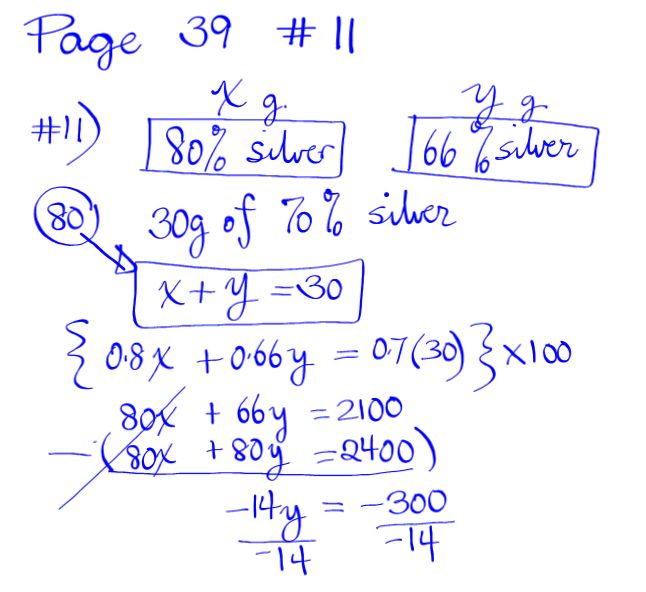 Page 39 # 11
x g. y g
#11) 80% silver 66 % silver
80 30g of 70% silver
x + y = 30
{ 0.8x + 0.66y = 0.7(30) } x100
80x + 66y = 2100
- (80x + 80y = 2400)
-14y = -300
-14 -14